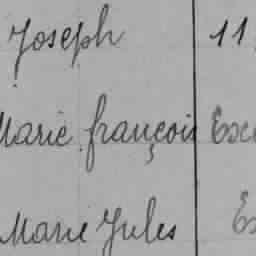 Joseph 11
Marie françois Exc
Marie Jules Ex